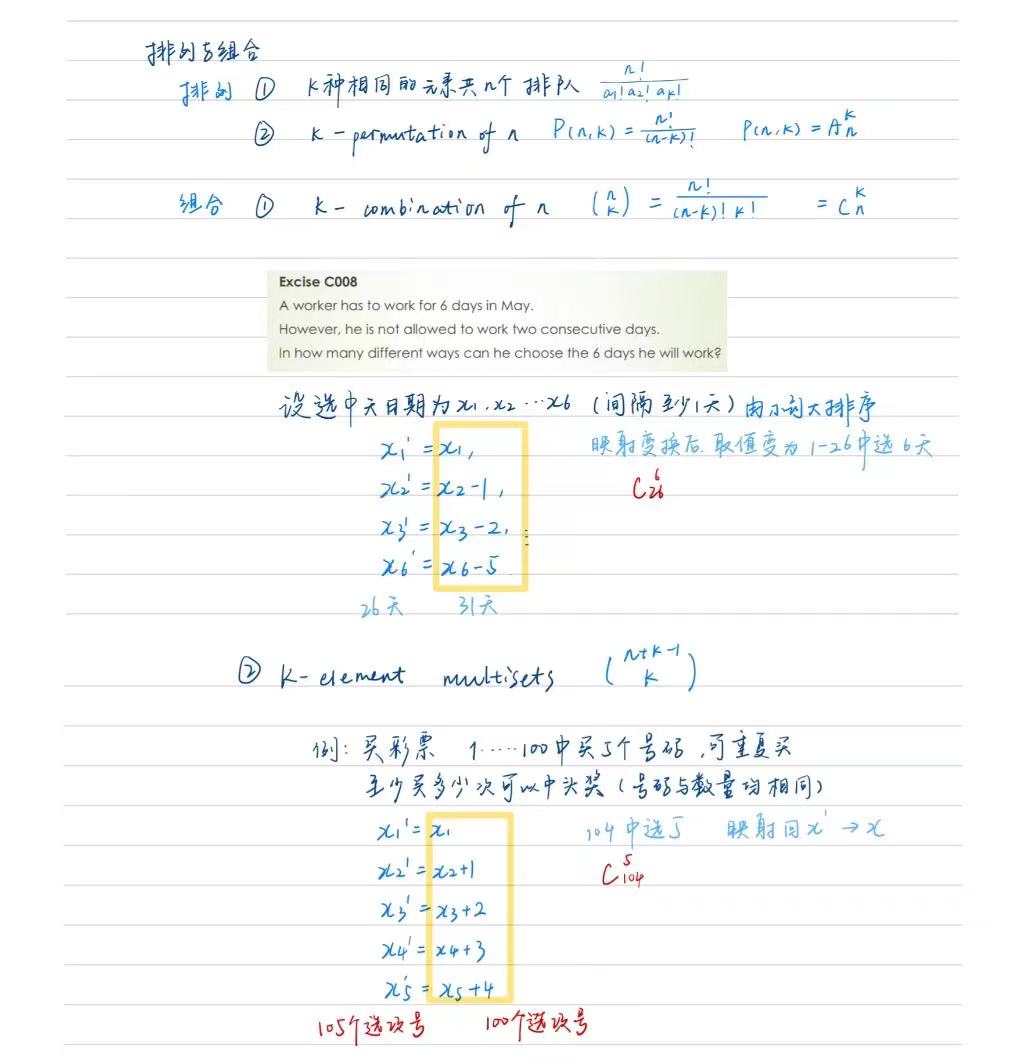 排列与组合
排列 ① K种相同的元素共n个 排队 n!/a₁!a₂!aₖ!
② K-permutation of n P(n,k) = n!/(n-k)! P(n,k) = Aₙᵏ
组合 ① K-combination of n (n k) = n!/(n-k)! k! = Cₙᵏ
Excise C008
A worker has to work for 6 days in May.
However, he is not allowed to work two consecutive days.
In how many different ways can he choose the 6 days he will work?
设选中天日期为x₁,x₂…x₆ (间隔至少1天) 由小到大排序
x₁' = x₁, 映射变换后. 取值变为1-26中选6天
x₂' = x₂-1, C₂₆⁶
x₃' = x₃-2, ⋮
x₆' = x₆-5
26天 31天
② K-element multisets (n+k-1 k)
例: 买彩票 1·····100中买5个号码,可重复买
至少买多少次可以中头奖(号码与数量均相同)
x₁' = x₁ 104中选5 映射回x' → x
x₂' = x₂+1 C₁₀₄⁵
x₃' = x₃+2
x₄' = x₄+3
x₅' = x₅+4
105个选项号 100个选项号